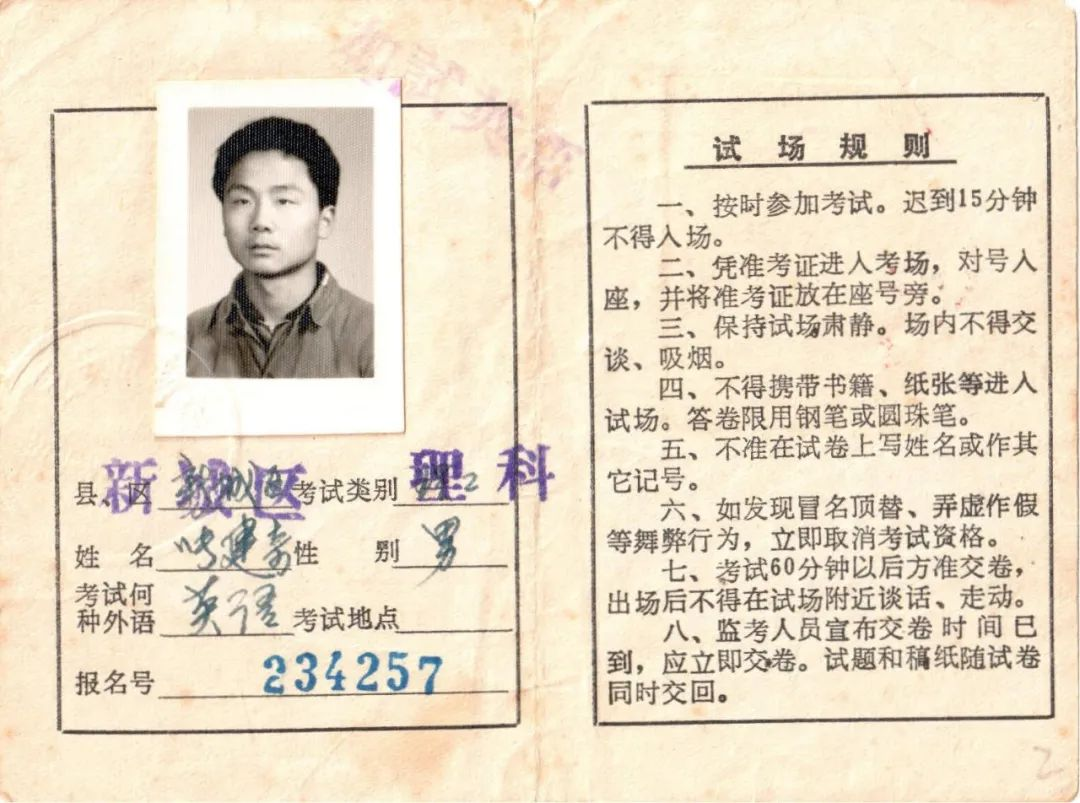 县、区 新城区 考试类别 理工
新城区 理科
姓 名 建 性 别 男
考试何
种外语 英语 考试地点
报名号 234257
试场规则
一、按时参加考试。迟到15分钟
不得入场。
二、凭准考证进入考场，对号入
座，并将准考证放在座号旁。
三、保持试场肃静。场内不得交
谈、吸烟。
四、不得携带书籍、纸张等进入
试场。答卷限用钢笔或圆珠笔。
五、不准在试卷上写姓名或作其
它记号。
六、如发现冒名顶替、弄虚作假
等舞弊行为，立即取消考试资格。
七、考试60分钟以后方准交卷，
出场后不得在试场附近谈话、走动。
八、监考人员宣布交卷时间已
到，应立即交卷。试题和稿纸随试卷
同时交回。
2